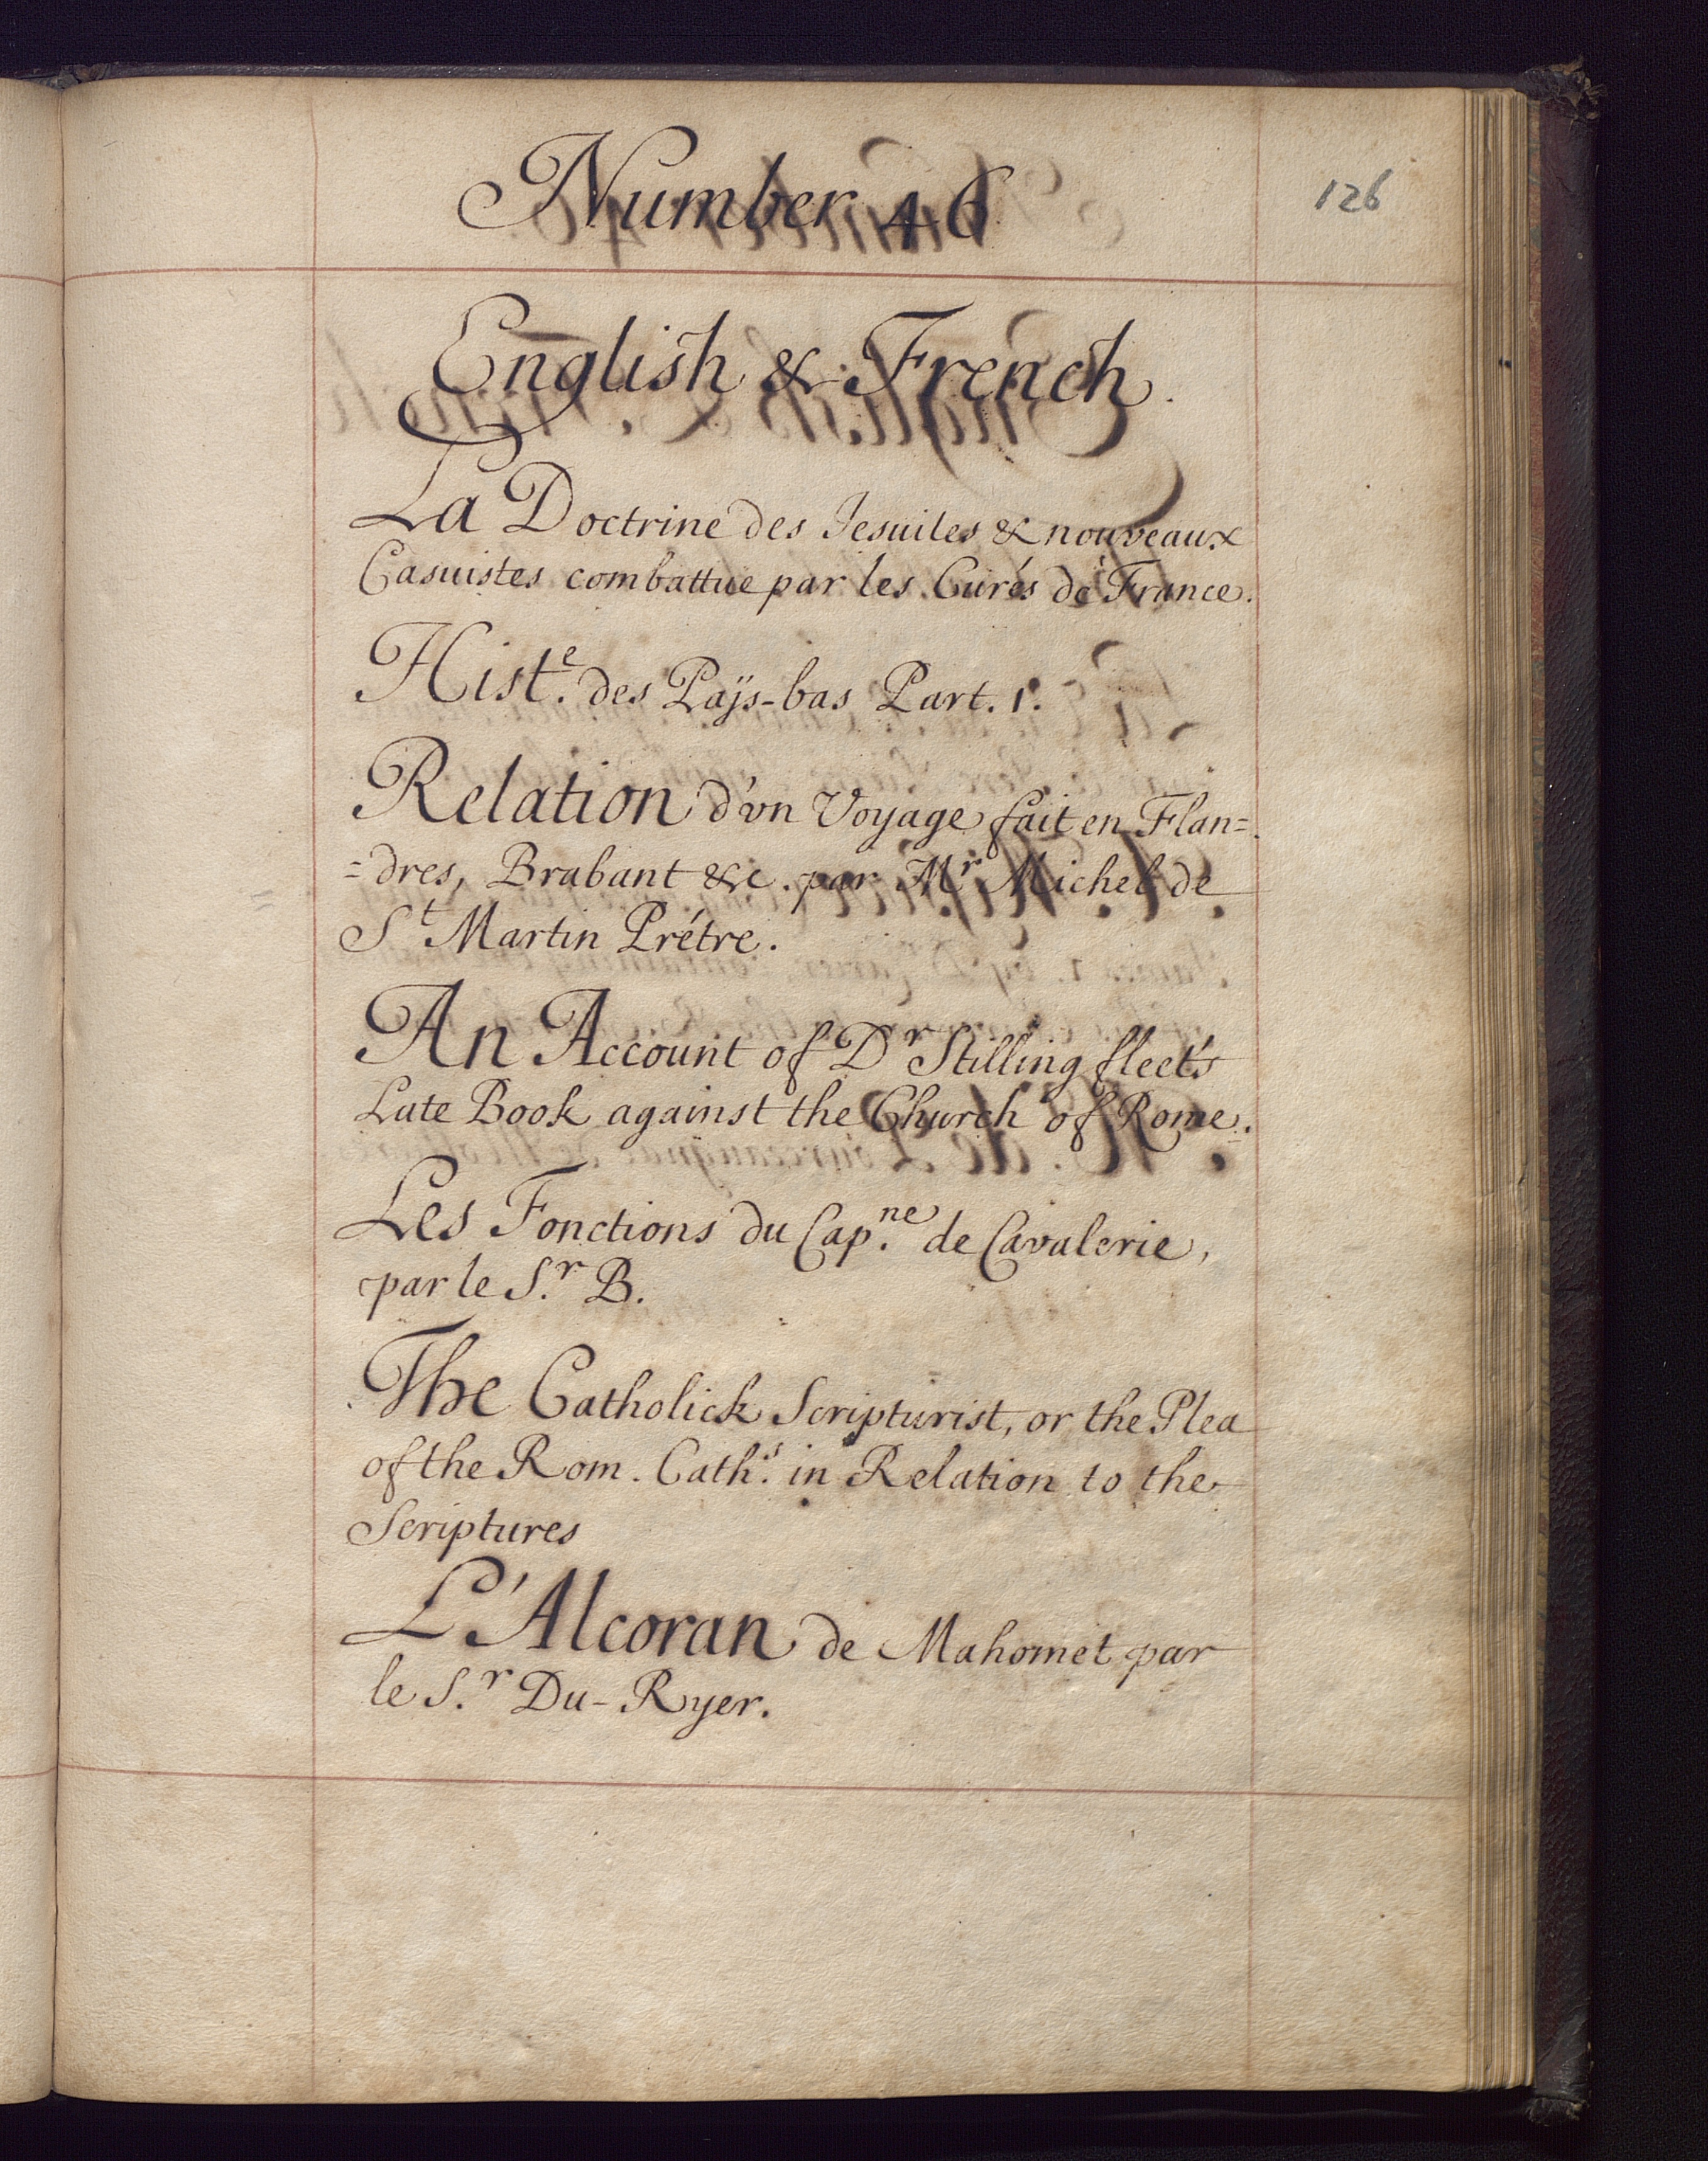 Number 46
126
English & French.
La Doctrine des Jesuites & nouveaux
Casuistes combattue par les Curés de France.
Hist.e des Païs-bas Part. 1.
Relation d'vn Voyage fait en Flan=
=dres, Brabant &c. par Mr. Michel de
St Martin Prétre.
An Account of Dr Stilling fleet's
Late Book against the Church of Rome.
Les Fonctions du Cap.ne de Cavalerie,
par le S.r B.
The Catholick Scripturist, or the Plea
of the Rom. Cath.s in Relation to the
Scriptures
L'Alcoran de Mahomet par
le S.r Du-Ryer.